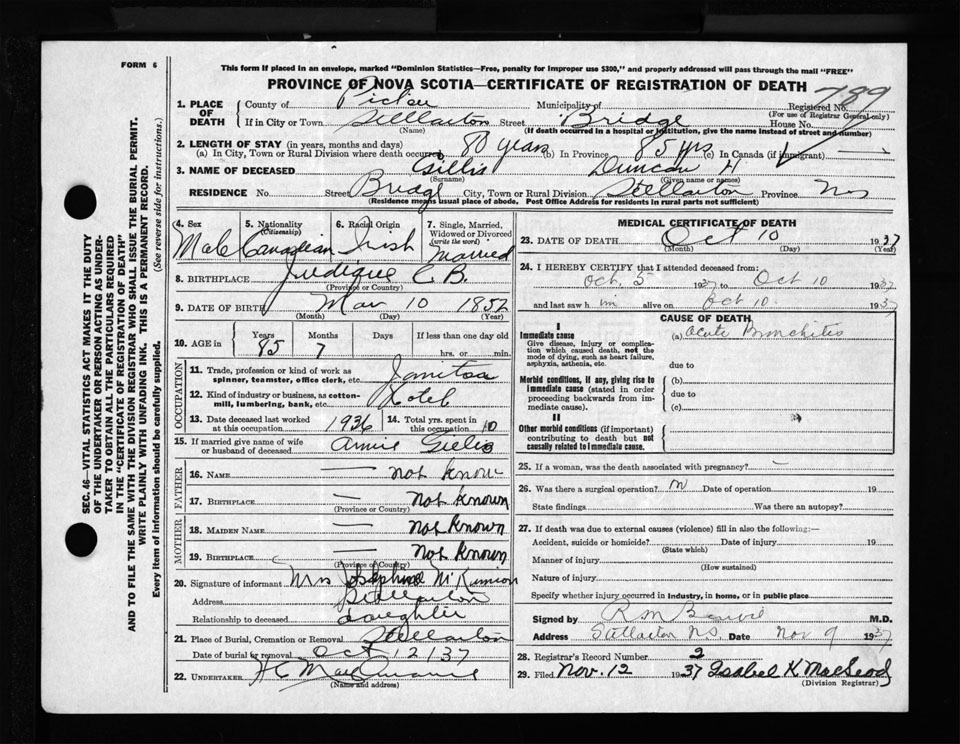 FORM 6
This form if placed in an envelope, marked "Dominion Statistics—Free, penalty for improper use $300," and properly addressed will pass through the mail "FREE"
PROVINCE OF NOVA SCOTIA—CERTIFICATE OF REGISTRATION OF DEATH
789
1. PLACE OF DEATH County of Pictou Municipality of Registered No. (For use of Registrar General only)
If in City or Town Stellarton (Name) Street Bridge House No.
(If death occurred in a hospital or institution, give the name instead of street and number)
2. LENGTH OF STAY (in years, months and days)
(a) In City, Town or Rural Division where death occurred 80 years (b) In Province 85 yrs (c) In Canada (if immigrant) —
3. NAME OF DECEASED Gillis (Surname) Duncan H (Given name or names)
RESIDENCE No. Street Bridge City, Town or Rural Division Stellarton Province NS
(Residence means usual place of abode. Post Office Address for residents in rural parts not sufficient)
4. Sex Male
5. Nationality (Citizenship) Canadian
6. Racial Origin Irish
7. Single, Married, Widowed or Divorced (write the word) Married
8. BIRTHPLACE Judique C B. (Province or Country)
9. DATE OF BIRTH Mar 10 1852 (Month) (Day) (Year)
10. AGE in Years 85 Months 7 Days If less than one day old hrs. or min.
OCCUPATION
11. Trade, profession or kind of work as spinner, teamster, office clerk, etc. Janitor
12. Kind of industry or business, as cotton-mill, lumbering, bank, etc. Hotel
13. Date deceased last worked at this occupation 1936
14. Total yrs. spent in this occupation 10
15. If married give name of wife or husband of deceased Annie Gillis
FATHER
16. NAME — not know
17. BIRTHPLACE — not known (Province or Country)
MOTHER
18. MAIDEN NAME — not known
19. BIRTHPLACE — not known (Province or Country)
20. Signature of informant Mrs Josephine McKinnon
Address Stellarton
Relationship to deceased daughter
21. Place of Burial, Cremation or Removal Stellarton
Date of burial or removal Oct 12/37
22. UNDERTAKER (Name and address)
MEDICAL CERTIFICATE OF DEATH
23. DATE OF DEATH Oct 10 1937 (Month) (Day) (Year)
24. I HEREBY CERTIFY that I attended deceased from:
Oct. 5 1937 to Oct 10 1937
and last saw h im alive on Oct 10. 1937
CAUSE OF DEATH
I
Immediate cause (a) Acute Bronchitis
Give disease, injury or complication which caused death, not the mode of dying, such as heart failure, asphyxia, asthenia, etc.
due to
Morbid conditions, if any, giving rise to immediate cause (stated in order proceeding backwards from immediate cause).
(b)
due to
(c)
II
Other morbid conditions (if important) contributing to death but not causally related to immediate cause.
25. If a woman, was the death associated with pregnancy? —
26. Was there a surgical operation? Date of operation 19
State findings Was there an autopsy?
27. If death was due to external causes (violence) fill in also the following:—
Accident, suicide or homicide? (State which) Date of injury 19
Manner of injury (How sustained)
Nature of injury
Specify whether injury occurred in Industry, in home, or in public place
Signed by M.D.
Address Stellarton N.S. Date Nov 9 1937
28. Registrar's Record Number 2
29. Filed Nov. 12 1937 Isobel K MacLeod (Division Registrar)
SEC. 46—VITAL STATISTICS ACT MAKES IT THE DUTY
OF THE UNDERTAKER OR PERSON ACTING AS UNDER-
TAKER TO OBTAIN ALL THE PARTICULARS REQUIRED
IN THE "CERTIFICATE OF REGISTRATION OF DEATH"
AND TO FILE THE SAME WITH THE DIVISION REGISTRAR WHO SHALL ISSUE THE BURIAL PERMIT.
WRITE PLAINLY WITH UNFADING INK. THIS IS A PERMANENT RECORD.
Every item of information should be carefully supplied. (See reverse side for instructions.)